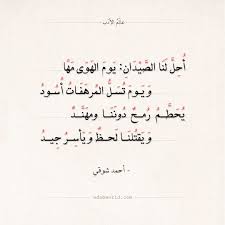 عالم الأدب
أُحِلَّ لَنَا الصَّيْدَانِ: يَومَ الهَوَى مَهًا
وَيَومَ تُسَلُّ المُرهَفَاتُ أُسُودُ
يُحَطَّمُ رُمحٌ دُونَنَا وَمُهَنَّدٌ
وَيَقتُلُنَا لَحظٌ وَيَأسِرُ جِيدُ
- أحمد شوقي
adabworld.com